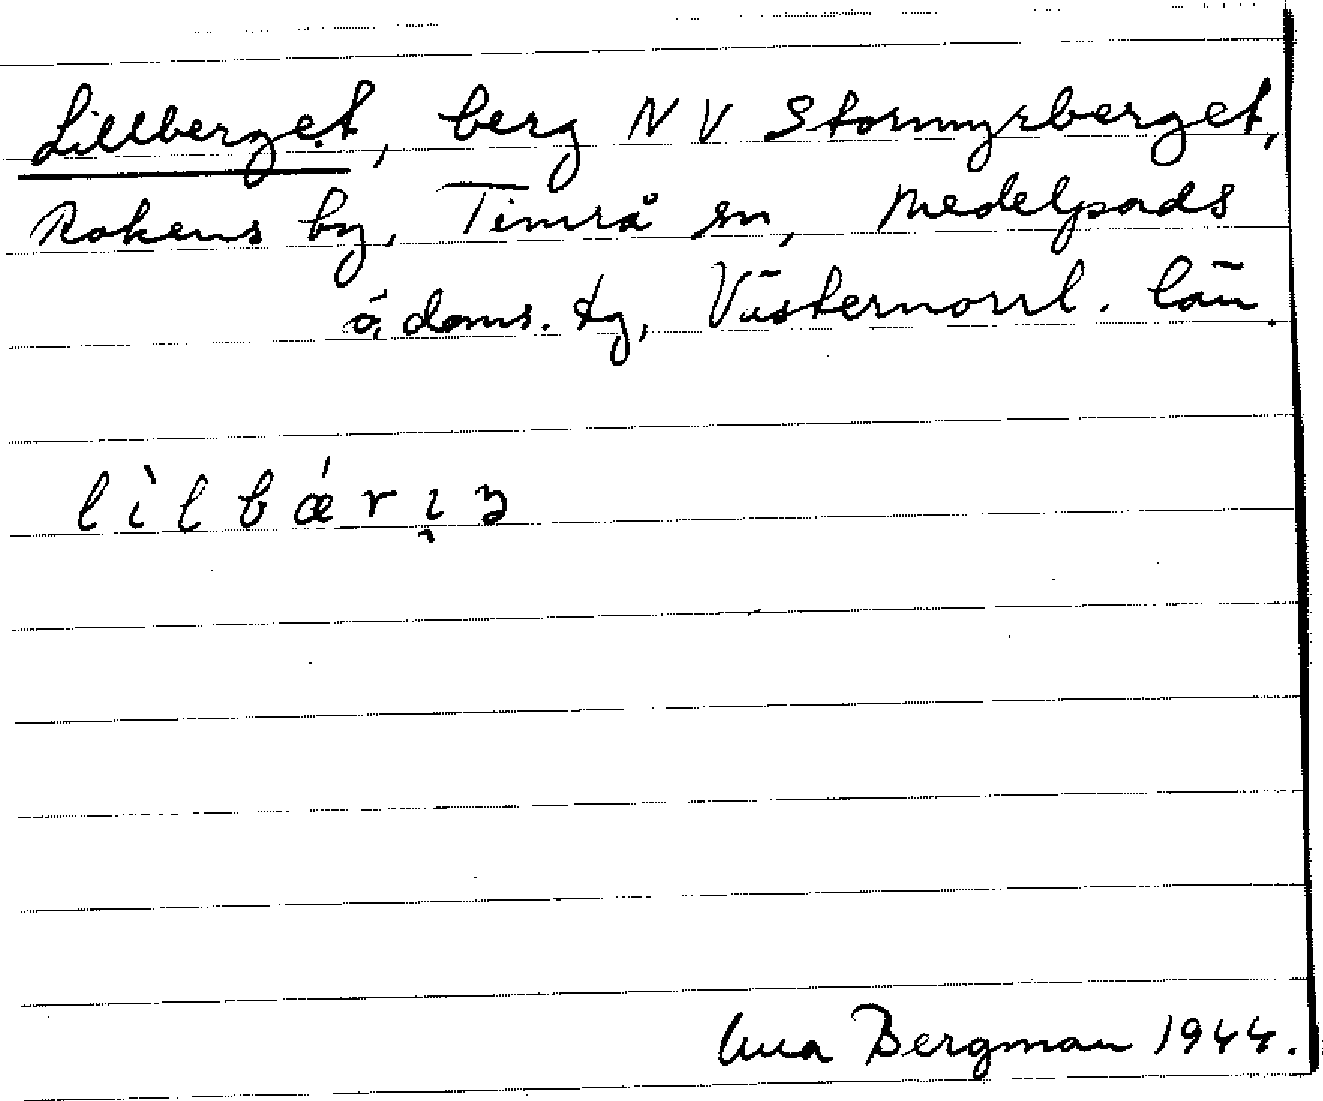 Lillberget, berg NV Stormyrberget,
Rokens by, Timrå sn, Medelpads
ö. doms. tg, Västernorrl. län.
lìlbǽrı̯ɜ
Bergman 1944.